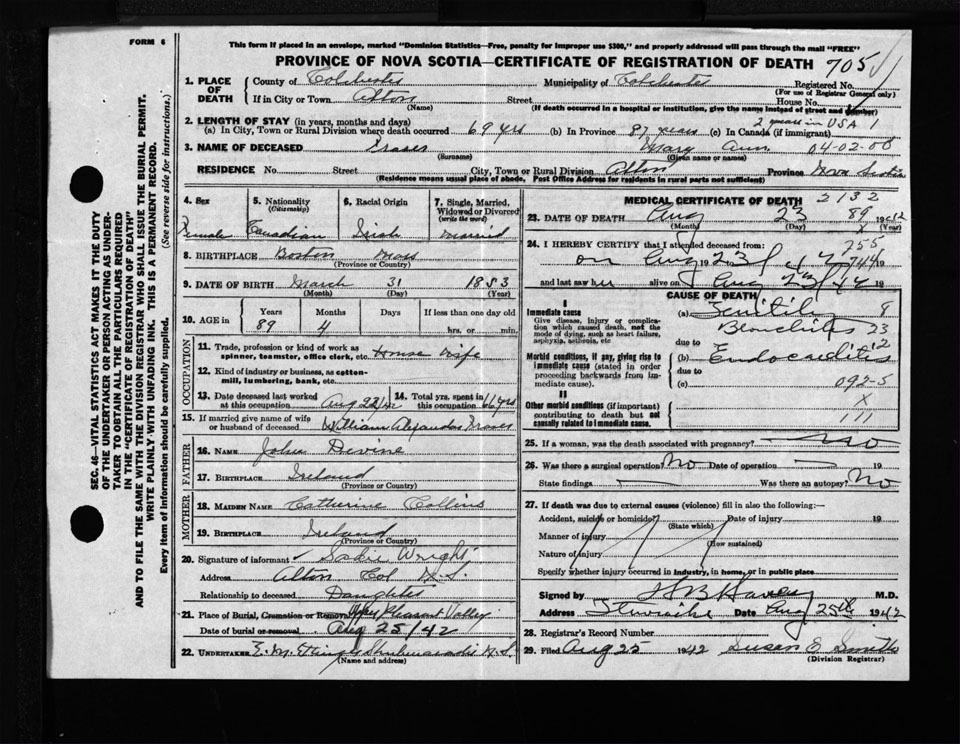 FORM 6
This form if placed in an envelope, marked "Dominion Statistics—Free, penalty for improper use $300," and properly addressed will pass through the mail "FREE"
PROVINCE OF NOVA SCOTIA—CERTIFICATE OF REGISTRATION OF DEATH 705
1. PLACE OF DEATH
County of Colchester Municipality of Colchester Registered No.
(For use of Registrar General only)
If in City or Town Alton Street House No.
(Name) (If death occurred in a hospital or institution, give the name instead of street and number)
2. LENGTH OF STAY (in years, months and days) 2 years in USA
(a) In City, Town or Rural Division where death occurred 69 yrs (b) In Province 87 years (c) In Canada (if immigrant)
3. NAME OF DECEASED Fraser Mary Ann 04-02-00
(Surname) (Given name or names)
RESIDENCE No. Street City, Town or Rural Division Alton Province Nova Scotia
(Residence means usual place of abode, Post Office Address for residents in rural parts not sufficient)
4. Sex
Female
5. Nationality
(Citizenship)
Canadian
6. Racial Origin
Irish
7. Single, Married, Widowed or Divorced
(write the word)
Married
8. BIRTHPLACE Boston Mass
(Province or Country)
9. DATE OF BIRTH March 31 1853
(Month) (Day) (Year)
10. AGE in Years Months Days If less than one day old
89 4 hrs. or min.
OCCUPATION
11. Trade, profession or kind of work as spinner, teamster, office clerk, etc. House wife
12. Kind of industry or business, as cotton-mill, lumbering, bank, etc.
13. Date deceased last worked at this occupation Aug 22/42
14. Total yrs. spent in this occupation 66 yrs
15. If married give name of wife or husband of deceased William Alexander Fraser
FATHER
16. NAME John Devine
17. BIRTHPLACE Ireland
(Province or Country)
MOTHER
18. MAIDEN NAME Catherine Collins
19. BIRTHPLACE Ireland
(Province or Country)
20. Signature of informant Sadie Wright
Address Alton Col N.S.
Relationship to deceased Daughter
21. Place of Burial, Cremation or Removal Pleasant Valley
Date of burial or removal Aug 25/42
22. UNDERTAKER E. M. Shubenacadie N.S.
(Name and address)
MEDICAL CERTIFICATE OF DEATH 2132
23. DATE OF DEATH Aug 23 89 1942
(Month) (Day) (Year)
24. I HEREBY CERTIFY that I attended deceased from: 755
on Aug 23 42 744 19
and last saw her alive on Aug 23/42 19
CAUSE OF DEATH
I
Immediate cause
Give disease, injury or complication which caused death, not the mode of dying, such as heart failure, asphyxia, asthenia, etc.
(a) Senility 8
Bronchitis 23
due to
Morbid conditions, if any, giving rise to immediate cause (stated in order proceeding backwards from immediate cause).
(b) Endocarditis
due to
(c) 092-5
II
Other morbid conditions (if important) contributing to death but not causally related to immediate cause. X
111
25. If a woman, was the death associated with pregnancy? No
26. Was there a surgical operation? No Date of operation 19
State findings Was there an autopsy? No
27. If death was due to external causes (violence) fill in also the following:—
Accident, suicide or homicide? Date of injury 19
(State which)
Manner of injury
(How sustained)
Nature of injury
Specify whether injury occurred in industry, in home, or in public place
Signed by M.D.
Address Stewiacke Date Aug 25th 1942
28. Registrar's Record Number
29. Filed Aug 25 1942 Susan E Smith
(Division Registrar)
SEC. 46—VITAL STATISTICS ACT MAKES IT THE DUTY
OF THE UNDERTAKER OR PERSON ACTING AS UNDER-
TAKER TO OBTAIN ALL THE PARTICULARS REQUIRED
IN THE "CERTIFICATE OF REGISTRATION OF DEATH"
AND TO FILE THE SAME WITH THE DIVISION REGISTRAR WHO SHALL ISSUE THE BURIAL PERMIT.
WRITE PLAINLY WITH UNFADING INK. THIS IS A PERMANENT RECORD.
Every item of information should be carefully supplied. (See reverse side for instructions.)